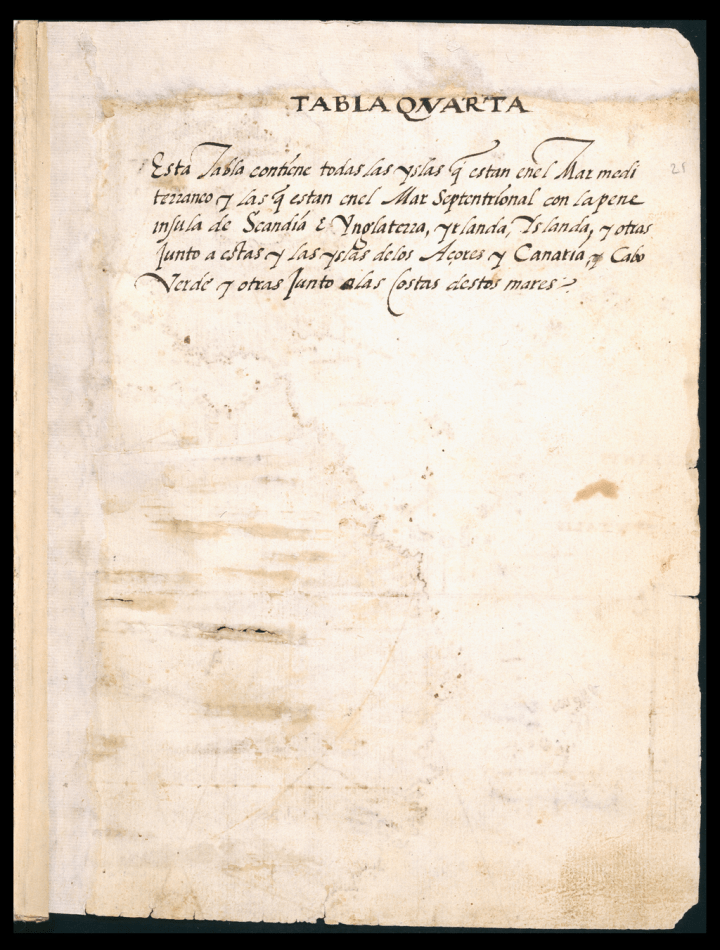 TABLA QVARTA
Esta Tabla contiene todas las yslas q̃ estan enel Mar medi
terraneo y las q̃ estan enel Mar Septentrional con la pene
insula de Scandia E Ynglaterra, yrlanda, Islanda, y otras
Junto a estas y las yslas delos Açores y Canaria, y Cabo
Verde y otras Junto alas Costas destos mares